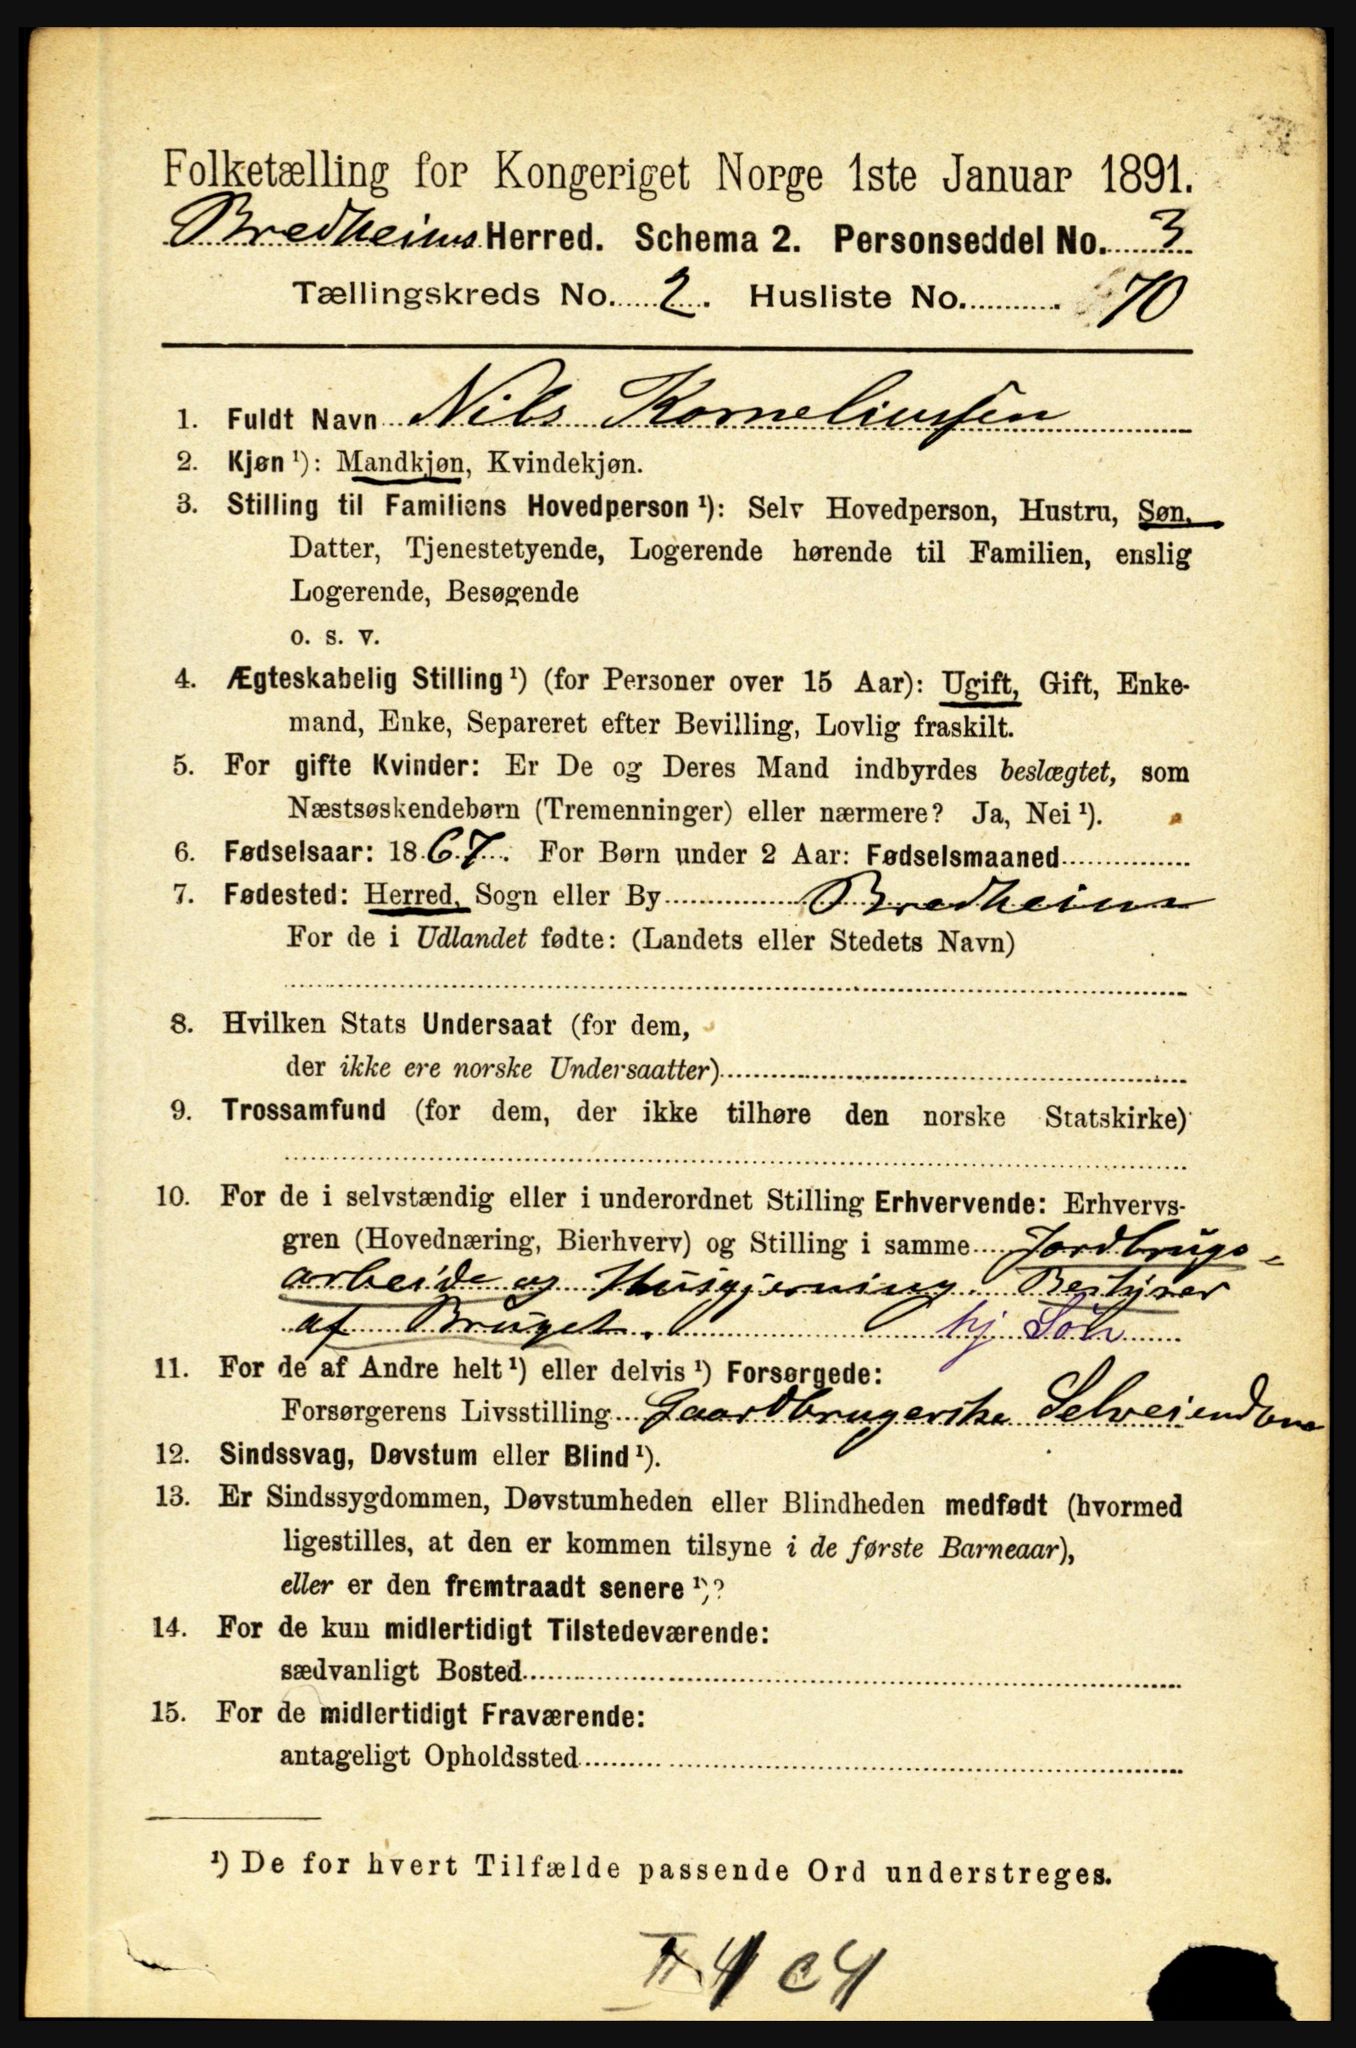 Folketælling for Kongeriget Norge 1ste Januar 1891.
Bredheims Herred. Schema 2. Personseddel No. 3
Tællingskreds No. 2. Husliste No. 70
1. Fuldt Navn Nils Korneliussen
2. Kjøn ¹): Mandkjøn, Kvindekjøn.
3. Stilling til Familiens Hovedperson ¹): Selv Hovedperson, Hustru, Søn,
Datter, Tjenestetyende, Logerende hørende til Familien, enslig
Logerende, Besøgende
o. s. v.
4. Ægteskabelig Stilling ¹) (for Personer over 15 Aar): Ugift, Gift, Enke-
mand, Enke, Separeret efter Bevilling, Lovlig fraskilt.
5. For gifte Kvinder: Er De og Deres Mand indbyrdes beslægtet, som
Næstsøskendebørn (Tremenninger) eller nærmere? Ja, Nei ¹).
6. Fødselsaar: 1867. For Børn under 2 Aar: Fødselsmaaned
7. Fødested: Herred, Sogn eller By Bredheim
For de i Udlandet fødte: (Landets eller Stedets Navn)
8. Hvilken Stats Undersaat (for dem,
der ikke ere norske Undersaatter)
9. Trossamfund (for dem, der ikke tilhøre den norske Statskirke)
10. For de i selvstændig eller i underordnet Stilling Erhvervende: Erhvervs-
gren (Hovednæring, Bierhverv) og Stilling i samme Jordbrugs-
arbeide og Husgjerning. Bestyrer
af Bruget. hj Søn
11. For de af Andre helt ¹) eller delvis ¹) Forsørgede:
Forsørgerens Livsstilling Gaardbrugerske Selveiendene
12. Sindssvag, Døvstum eller Blind ¹).
13. Er Sindssygdommen, Døvstumheden eller Blindheden medfødt (hvormed
ligestilles, at den er kommen tilsyne i de første Barneaar),
eller er den fremtraadt senere ¹)?
14. For de kun midlertidigt Tilstedeværende:
sædvanligt Bosted
15. For de midlertidigt Fraværende:
antageligt Opholdssted
¹) De for hvert Tilfælde passende Ord understreges.